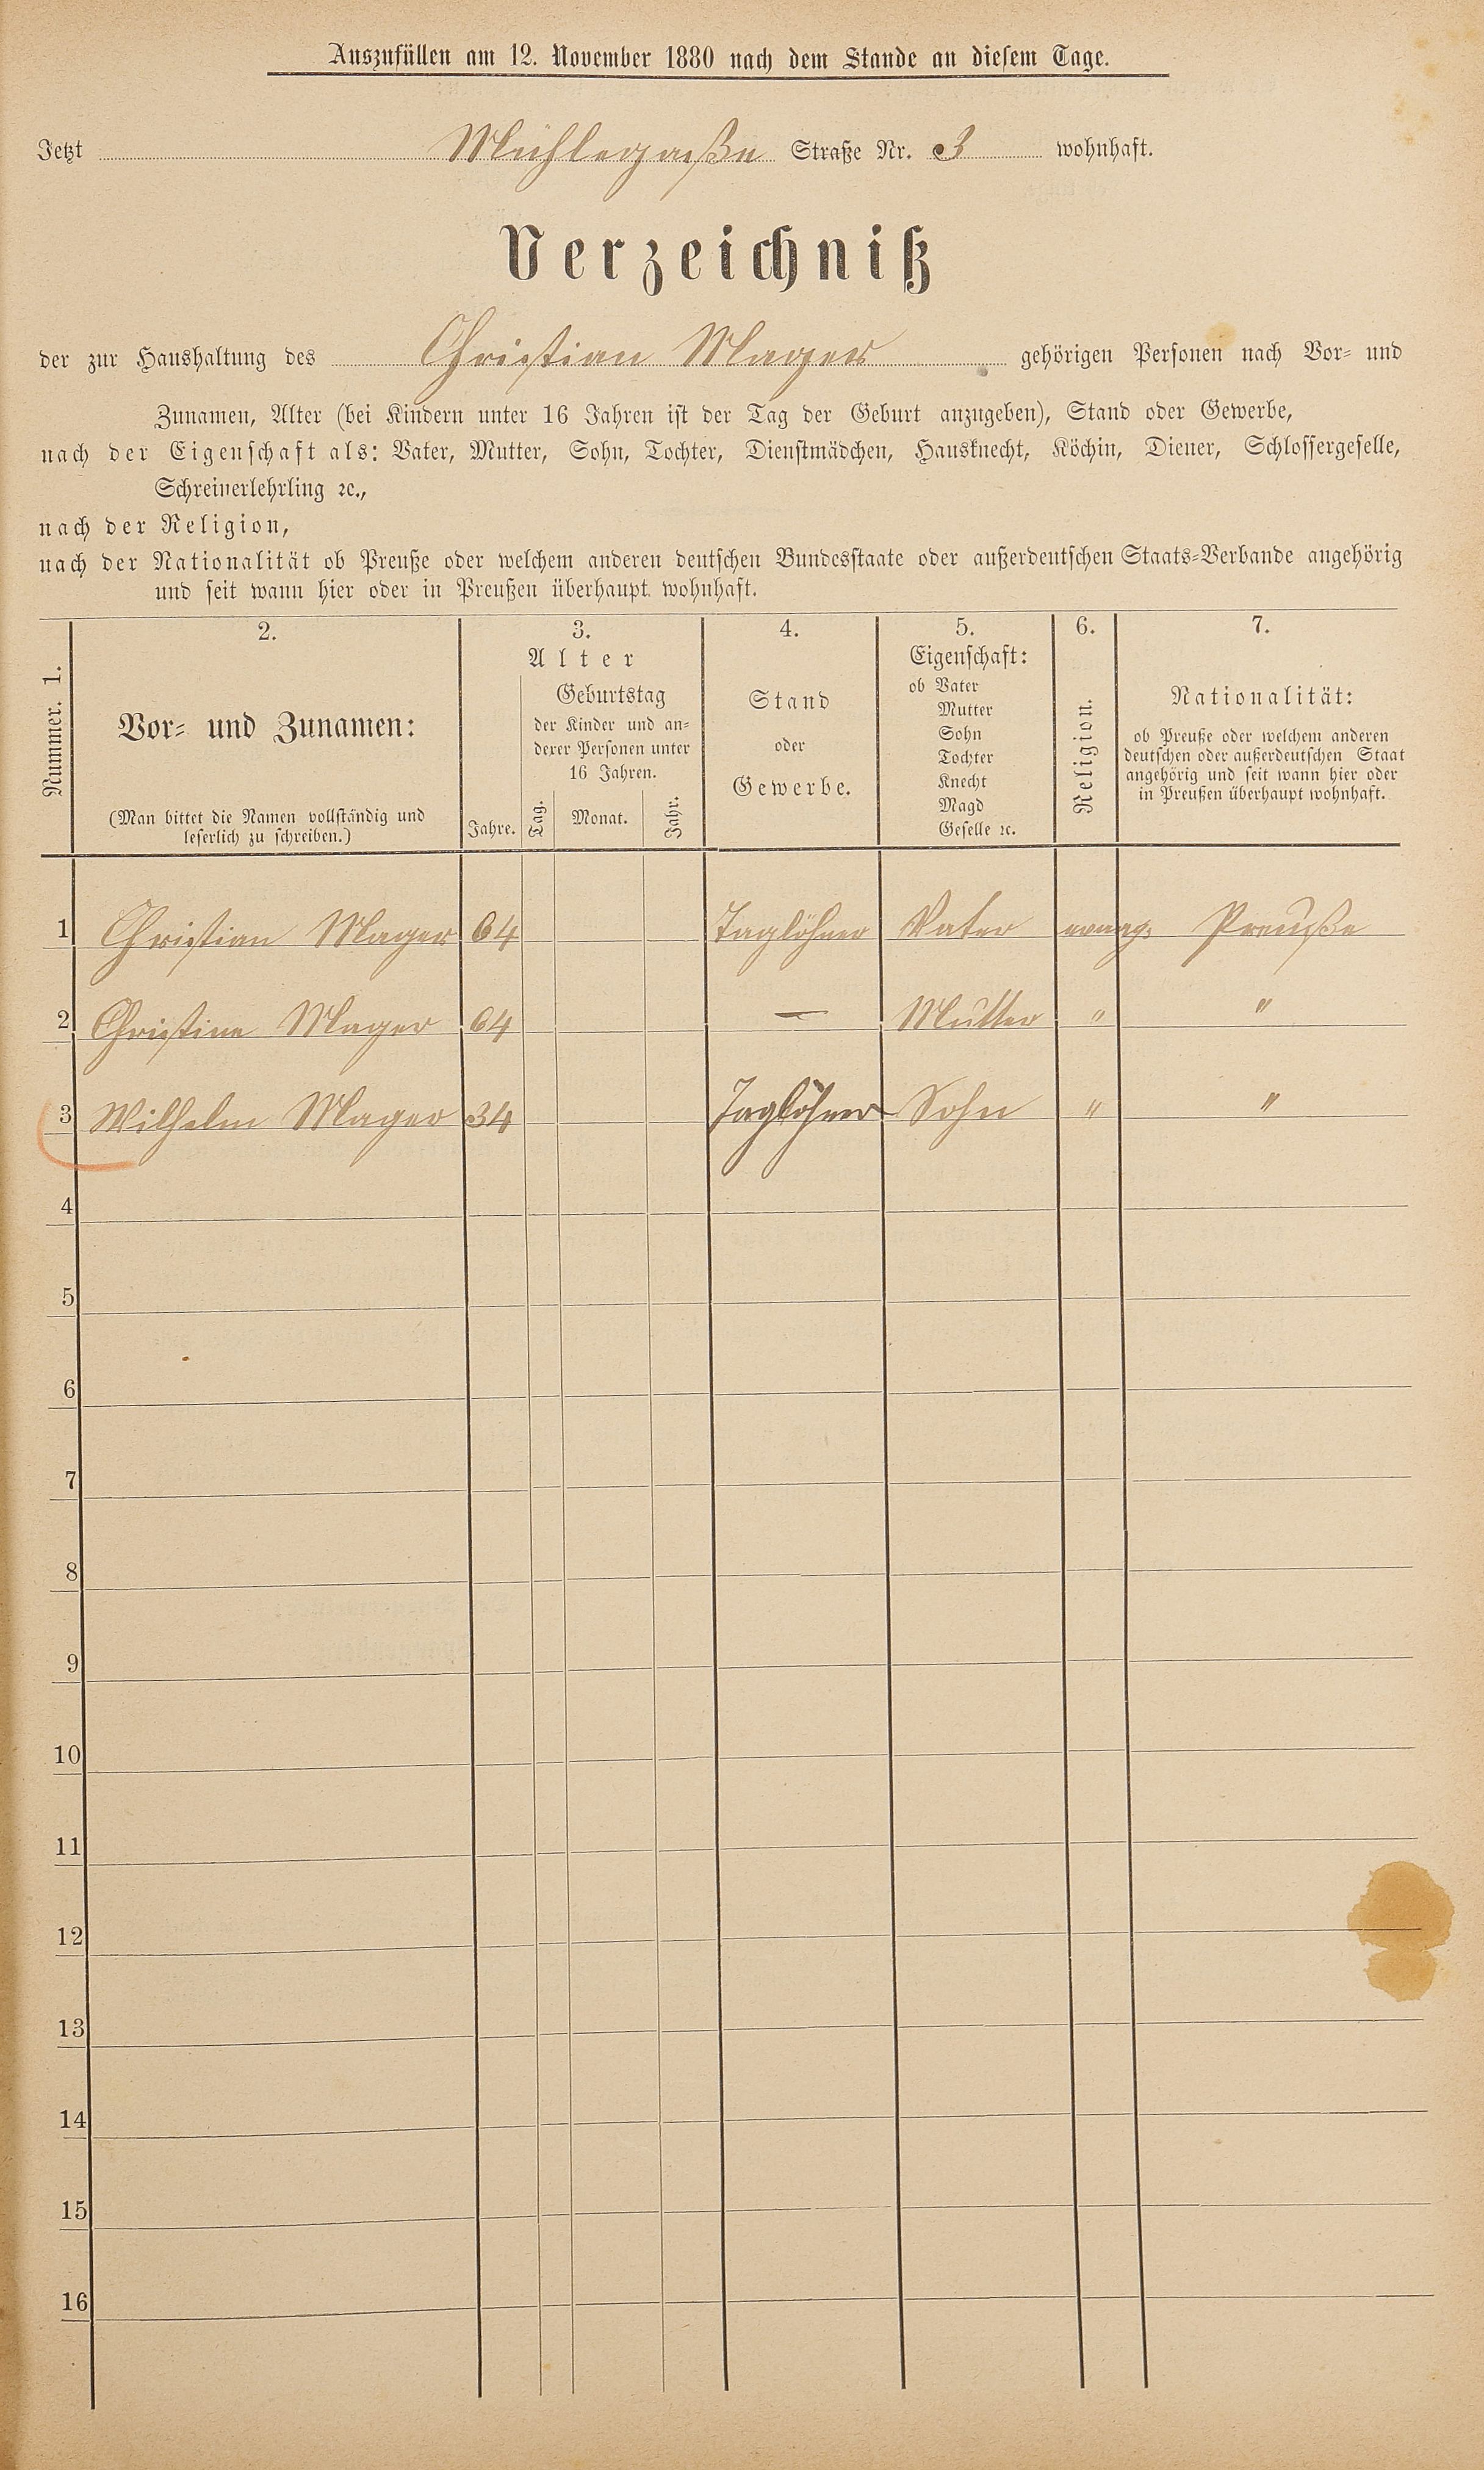 Auszufüllen am 12. November 1880 nach dem Stande an diesem Tage.
Jetzt Mühlegaße Straße Nr. 3 wohnhaft.
Verzeichniß
der zur Haushaltung des Christian Mager gehörigen Personen nach Vor- und
Zunamen, Alter (bei Kindern unter 16 Jahren ist der Tag der Geburt anzugeben), Stand oder Gewerbe,
nach der Eigenschaft als: Vater, Mutter, Sohn, Tochter, Dienstmädchen, Hausknecht, Köchin, Diener, Schlossergeselle,
Schreinerlehrling ꝛc.,
nach der Religion,
nach der Nationalität ob Preuße oder welchem anderen deutschen Bundesstaate oder außerdeutschen Staats-Verbande angehörig
und seit wann hier oder in Preußen überhaupt wohnhaft.
Nummer. 1.
2.
Vor- und Zunamen:
(Man bittet die Namen vollständig und
leserlich zu schreiben.)
3.
Alter
Jahre.
Geburtstag
der Kinder und an-
derer Personen unter
16 Jahren.
Tag. Monat. Jahr.
4.
Stand
oder
Gewerbe.
5.
Eigenschaft:
ob Vater
Mutter
Sohn
Tochter
Knecht
Magd
Geselle ꝛc.
6.
Religion.
7.
Nationalität:
ob Preuße oder welchem anderen
deutschen oder außerdeutschen Staat
angehörig und seit wann hier oder
in Preußen überhaupt wohnhaft.
1 Christian Mager 64 Taglöhner Vater evang. Preuße
2 Christine Mager 64 — Mutter " "
3 Wilhelm Mager 34 Taglöhner Sohn " "
4
5
6
7
8
9
10
11
12
13
14
15
16